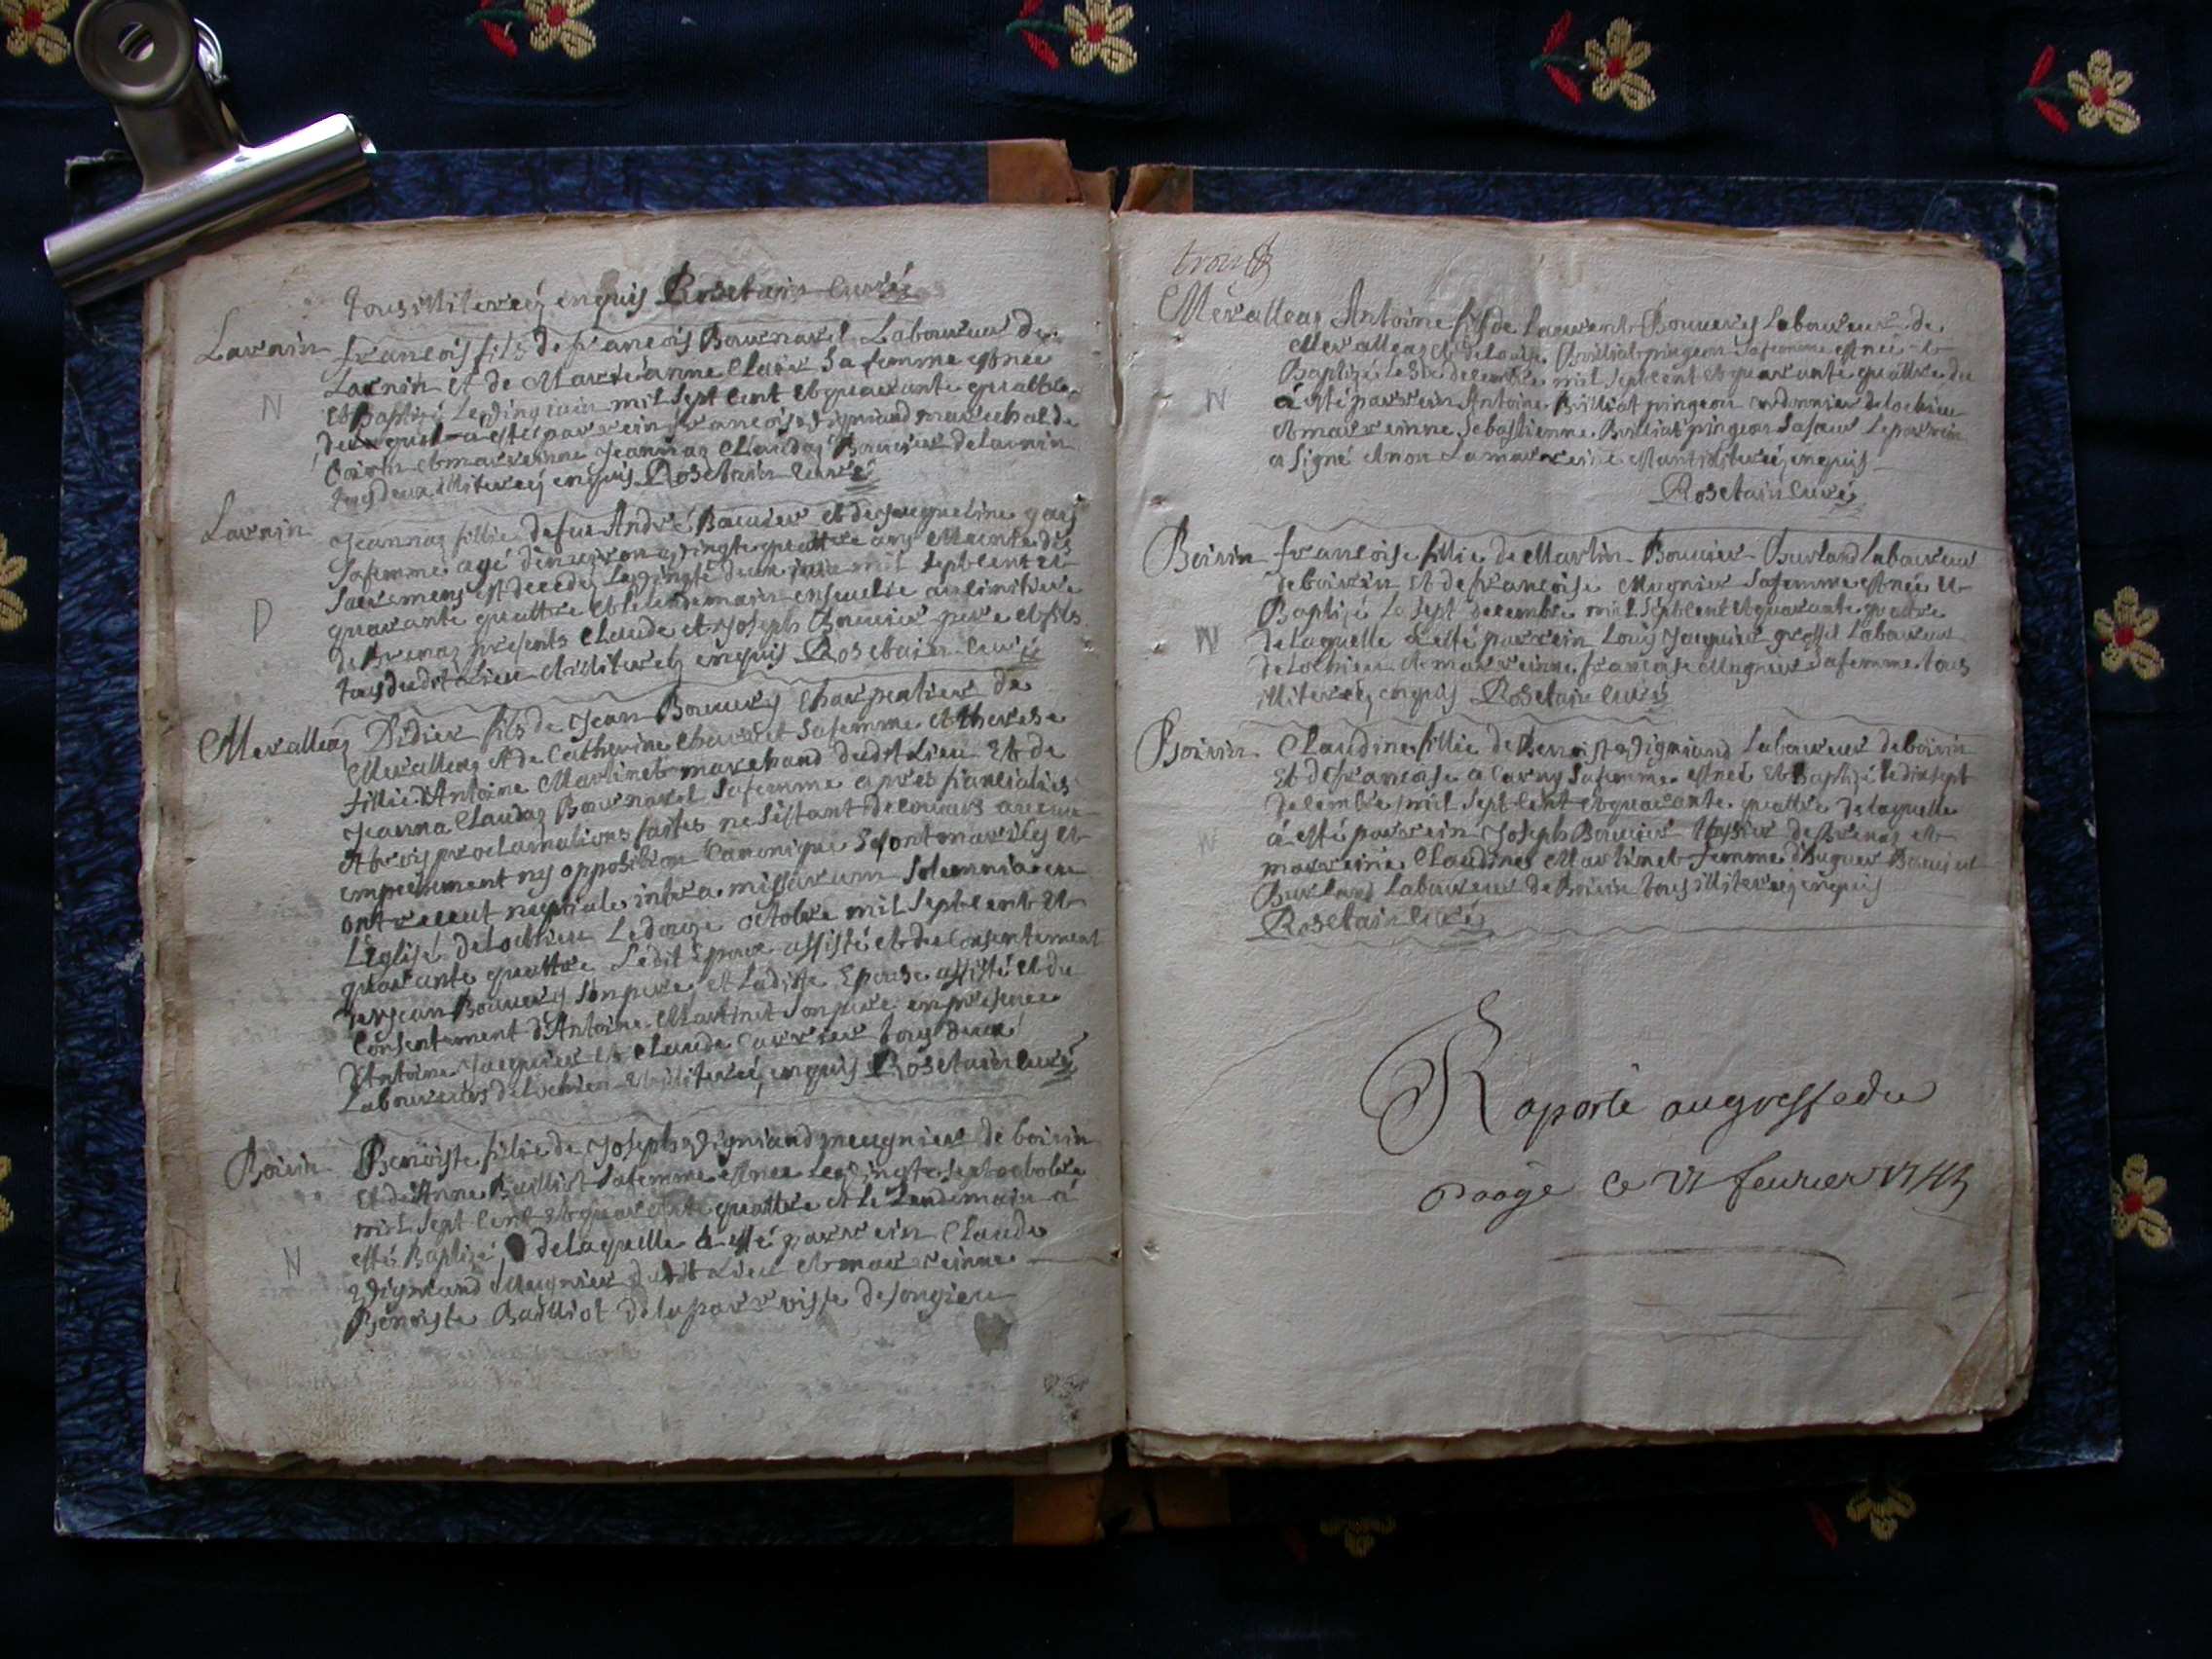 tous illiterez enquis Rosetain curé
Larnin francois fils de francois Bournavel Laboureur de
Larnin et de Marie anne Claire sa femme est née
N et Baptizé le vingt juin mil sept cent et quarante quattre
duquel a esté parrein francois Vigniand marechal de
Boirin et marreinne Jeannaz Claudaz Bouvier de larnin
tous deux illiterez enquis Rosetain curé
Larnin Jeannaz fillie de feu André Bouvier et de Jacqueline
sa femme agé d'environ vingte quattre ans Munte des
sacremens est decedez le vingte deux mil sept cent et
D quarante quattre et le lendemain ensevelie au cimitiere
de Brenaz presents Claude et Joseph Bouvier pere et fils
tous dudit Lieu et illiterez enquis Rosetain curé
Meralleaz Didier fils de Jean Bouvery Charpentier de
Meralleaz et de Catherine Charvet sa femme et therese
fillie d'Antoine Martinet marchand dudit Lieu et de
Jeanna Claudaz Bournavel sa femme apres fiancialies
et trois proclamations faites ne s'estant decouvers aucun
empechement ny opposition Canonique se sont mariez et
ont receut nuptiale intra missarum solemnia en
l'Eglise de Lochieu le douze octobre mil sept cent et
quarante quattre Ledit Epoux assisté et du Consentement
de Jean Bouvery son pere et Laditte Epouse assisté et du
Consentement d'Antoine Martinet son pere en presence
d'Antoine Jacquier et Claude Carrier tous deux
Laboureurs de Lochieu et illiterez enquis Rosetain curé
Boirin Benoiste fillie de Joseph Vigniand meugnier de boirin
et d'Anne Bailliot sa femme est nee le vingte sept octobre
mil sept cent et quarante quattre et le Lendemain a
N esté Baptizé de laquelle a esté parrein Claude
Vigniand Meugnier dudit Lieu et marreinne
Benoiste Bailliot de la parroisse de songieu
trois
Meralleaz Antoine fils de Laurent Bouvery Laboureur de
Meralleaz et de Louise Brilliat pingeon sa femme est née et
Baptizé le six decembre mil sept cent et quarante quattre du
N a esté parrein Antoine Brilliat pingeon cordonnier de lochieu
et marreinne Sebastienne Brilliat pingeon sa soeur le parrein
a signé et non la marreine illiterez enquis
Rosetain curé
Boirin francoise fillie de Martin Bouvier Burland laboureur
de boirin et de francoise Mugnier sa femme est née et
Baptizé le sept decembre mil sept cent et quarante quattre
N de laquelle a esté parrein Louis Jacquier grossel laboureur
de Lochieu et marreinne francoise Mugnier sa femme tous
illiterez enquis Rosetain curé
Boirin Claudine fillie de Benoist Vigniand laboureur de boirin
et de francoise a Carny sa femme est neé et Baptizé le dixsept
decembre mil sept cent et quarante quattre de laquelle
N a esté parrein Joseph Bouvier de Brenaz et
marreine Claudine Martinet femme d'Hugues Bouvier
Burland Laboureur de Boirin tous illiterez enquis
Rosetain curé
Raporté au greffe du
ce 21 feurier 1745